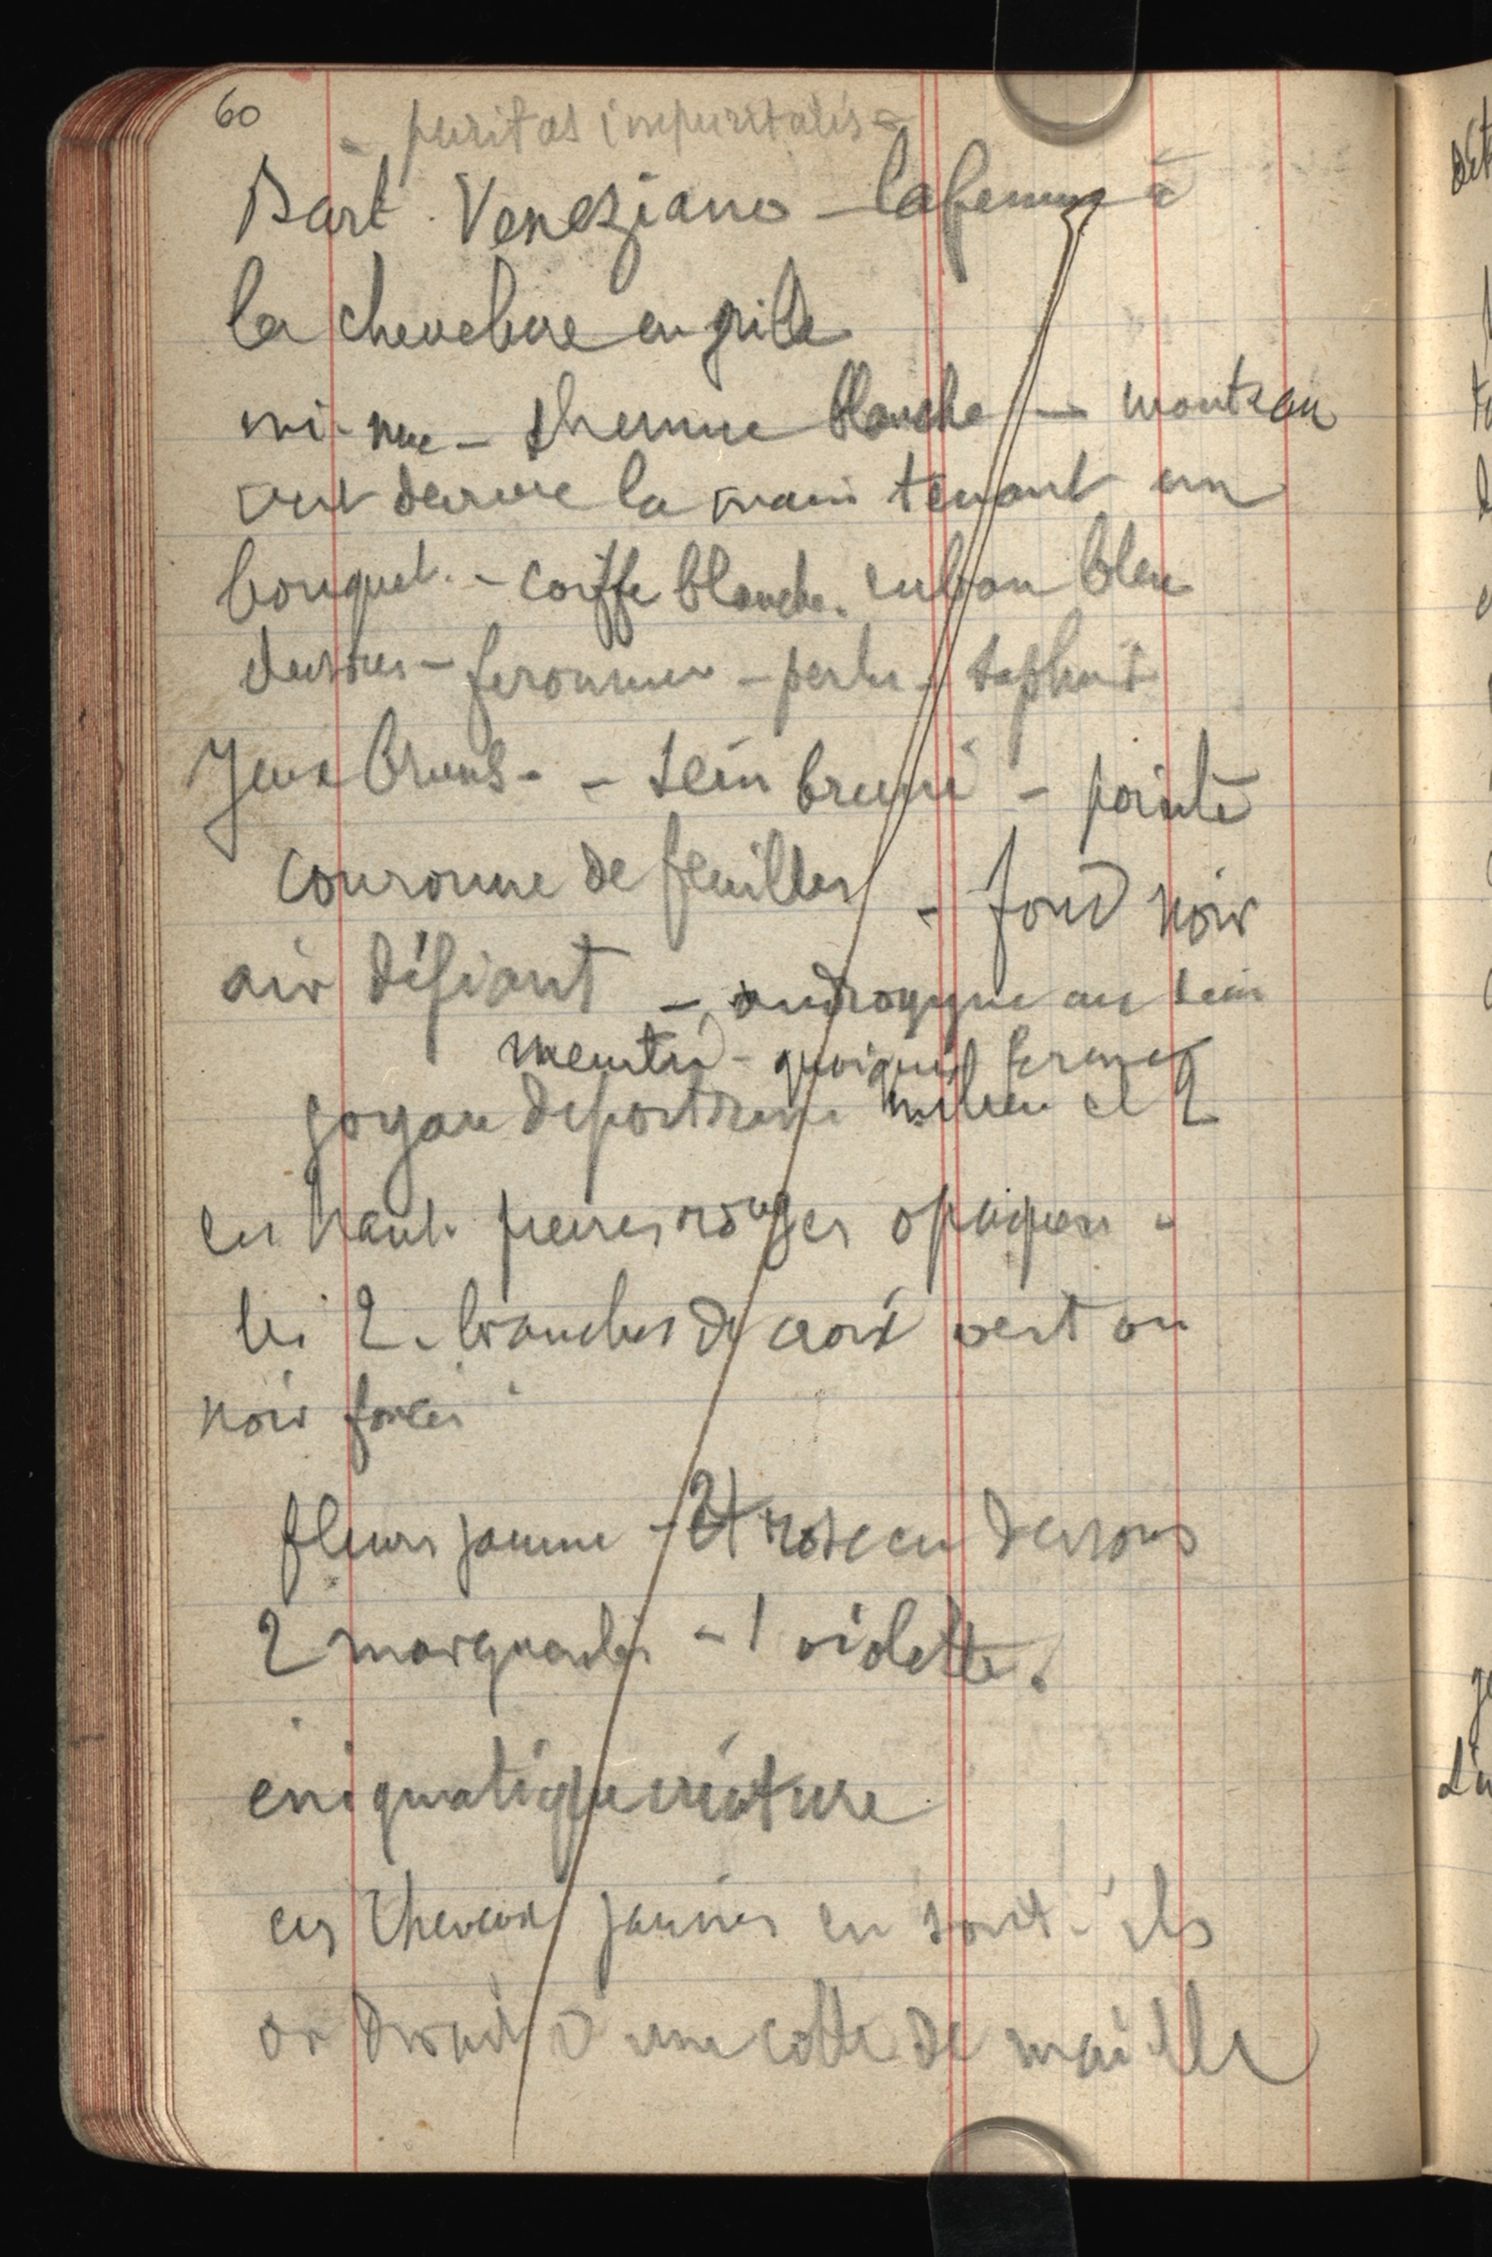 60
- puritas impuritatis -
Bart. Veneziano - la femme à
la chevelure en grille
mi-nue - chemise blanche - manteau
vert derrière la main tenant un
bouquet. - coiffe blanche. ruban bleu
dessus - - perles - saphirs
Yeux bruns - - sein bruni - pointe
couronne de feuilles - fond noir
air défiant - androgyne au sein
meurtri - quoique ferme
joyau de poitrine milieu et 2
en haut. pierres rouges opaques -
les 2 branches de croix vert ou
noir foncés
fleurs jaune - et rose en dessous
2 marguerites - 1 violette.
enigmatique créature
ces cheveux jaunes en sont-ils
or d'une cotte de maille